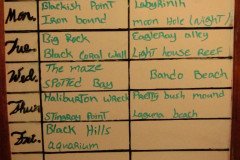 Mon. Blackish Point Labyrinth
Iron bound moon Hole (night)
Tue. Big Rock EagleRay alley
Black Coral Wall Light house reef
Wed. The maze Bando Beach
SPotted Bay
Thurs Haliburton wreck Pretty bush mound
Stingray Point Laguna beach
Fri. Black Hills
aquarium